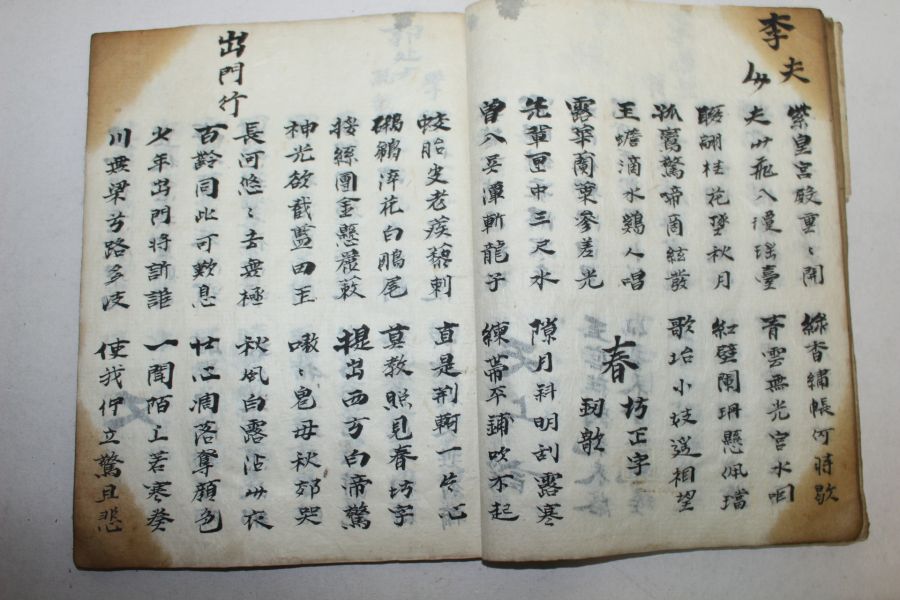 李夫人
紫皇宮殿重〻開
夫人飛入瓊瑤臺
綠香繡帳何時歇
青雲無光宮水咽
翩聯桂花墜秋月
孤鸞驚啼商絃發
紅壁闌珊懸佩璫
歌坮小妓遙相望
玉蟾滴水鷄人唱
露華蘭葉參差光
春坊正字
劒歌
先輩匣中三尺水
曾入吳潭斬龍子
隙月斜明刮露寒
練帶平鋪吹不起
蛟胎皮老蒺藜刺
鸊鵜淬花白鷳尾
直是荊軻一片心
莫教照見春坊字
挼絲團金懸簏簌
神光欲截藍田玉
提出西方白帝驚
嗷〻鬼母秋郊哭
出門行
長河悠〻去無極
百齡同此可歎息
秋風白露沾人衣
壯心凋落奪顏色
少年出門將訴誰
川無梁兮路多波
一聞陌上苦寒奏
使我佇立驚且悲